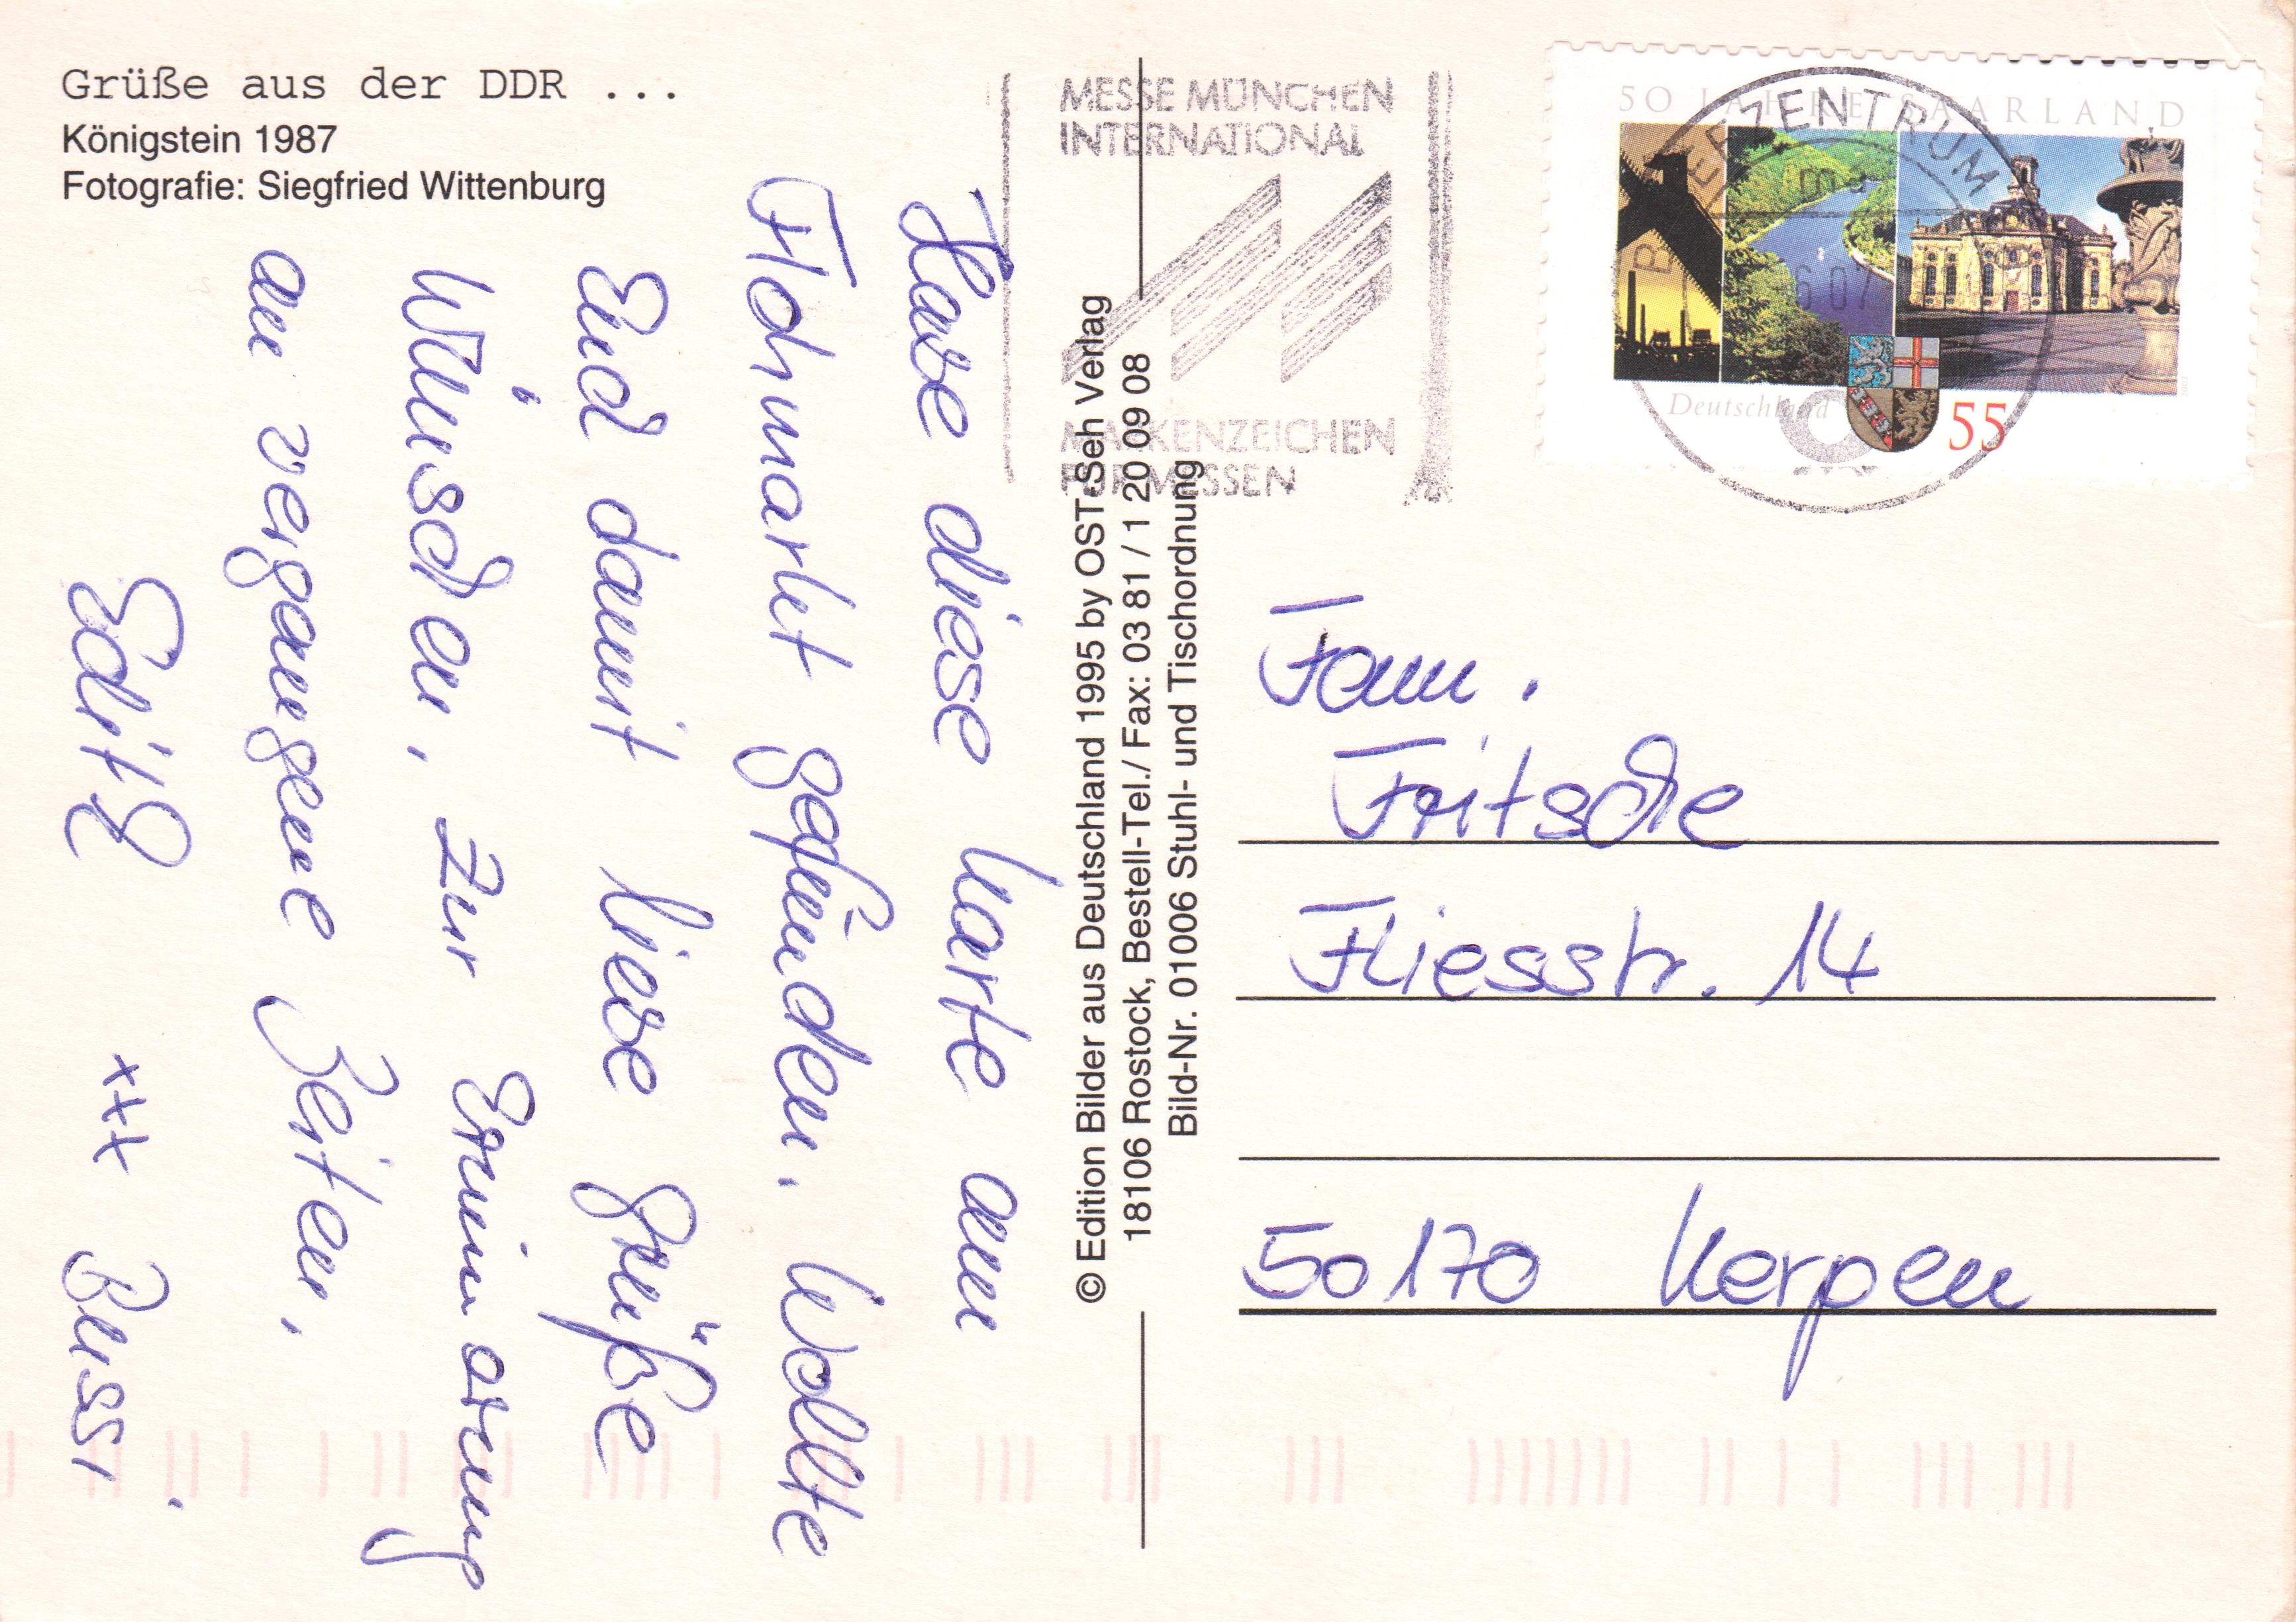 Grüße aus der DDR ...
Königstein 1987
Fotografie: Siegfried Wittenburg
Habe diese Karte am
Flohmarkt gefunden. Wollte
Euch damit liebe Grüße
wünschen, zur Erinnerung
an vergangene Zeiten,
Edith xxx Bussi.
© Edition Bilder aus Deutschland 1995 by OST-Seh Verlag
18106 Rostock, Bestell-Tel./ Fax: 03 81 / 1 20 09 08
Bild-Nr. 01006 Stuhl- und Tischordnung
MESSE MÜNCHEN
INTERNATIONAL
MARKENZEICHEN
FÜR MESSEN
50 JAHRE SAARLAND
BRIEFZENTRUM
6 07
Deutschland
55
Fam.
Fritsche
Fliesstr. 14
50170 Kerpen